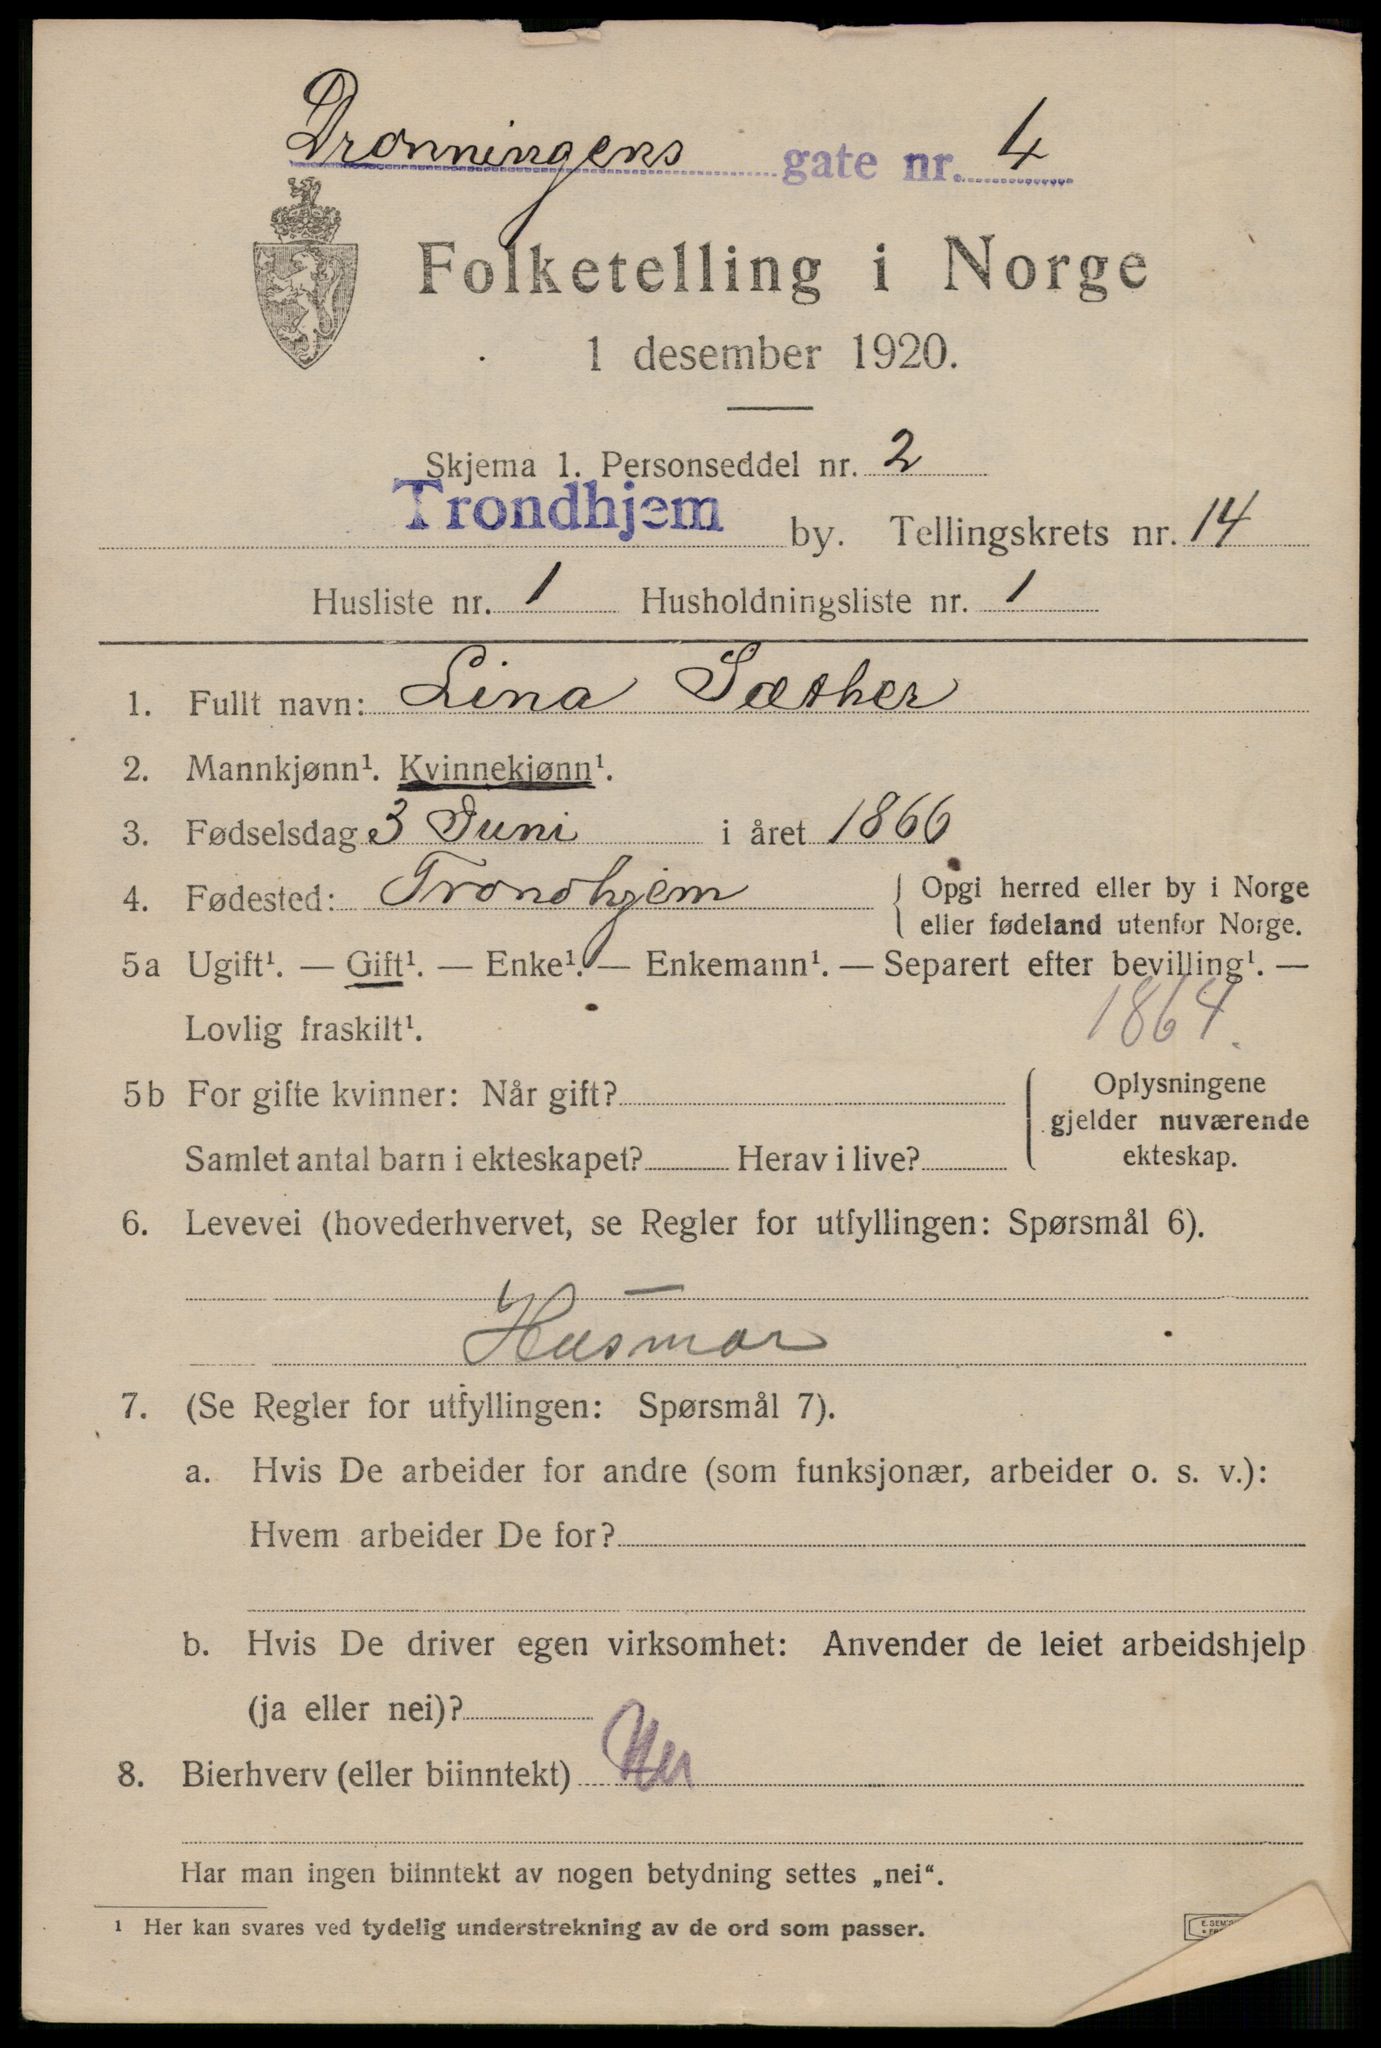 Dronningens gate nr. 4
Folketelling i Norge
1 desember 1920.
Skjema 1. Personseddel nr. 2
Trondhjem by. Tellingskrets nr. 14
Husliste nr. 1 Husholdningsliste nr. 1
1. Fullt navn: Lina Sæther
2. Mannkjønn¹. Kvinnekjønn¹.
3. Fødselsdag 3 Juni i året 1866
4. Fødested: Trondhjem { Opgi herred eller by i Norge
eller fødeland utenfor Norge.
5a Ugift¹. — Gift¹. — Enke¹. — Enkemann¹. — Separert efter bevilling¹. —
Lovlig fraskilt¹. 1864.
5b For gifte kvinner: Når gift? { Oplysningene
gjelder nuværende
Samlet antal barn i ekteskapet? Herav i live? ekteskap.
6. Levevei (hovederhvervet, se Regler for utfyllingen: Spørsmål 6).
—
Husmor
7. (Se Regler for utfyllingen: Spørsmål 7).
a. Hvis De arbeider for andre (som funksjonær, arbeider o. s. v.):
Hvem arbeider De for?
b. Hvis De driver egen virksomhet: Anvender de leiet arbeidshjelp
(ja eller nei)?
8. Bierhverv (eller biinntekt) Nei
Har man ingen biinntekt av nogen betydning settes „nei“.
¹ Her kan svares ved tydelig understrekning av de ord som passer.